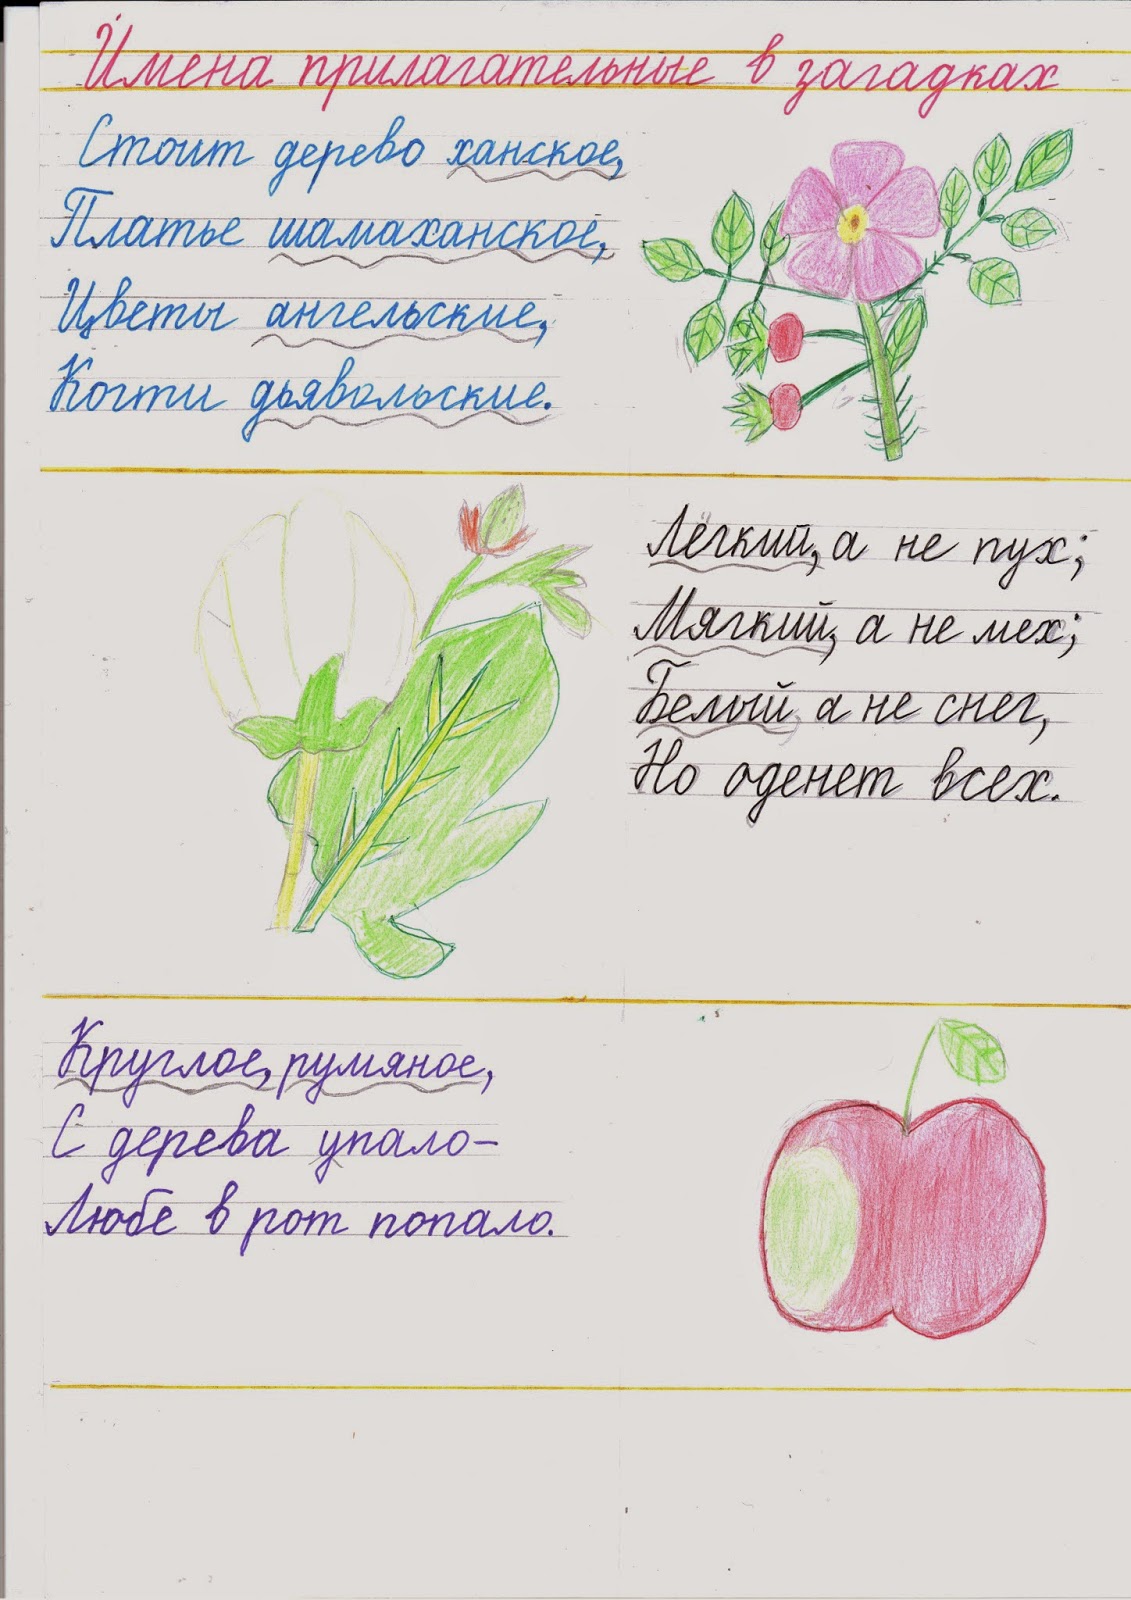 Имена прилагательные в загадках
Стоит дерево ханское,
Платье шамаханское,
Цветы ангельские,
Когти дьявольские.
Лёгкий, а не пух;
Мягкий, а не мех;
Белый, а не снег,
Но оденет всех.
Круглое, румяное,
С дерева упало–
Любе в рот попало.